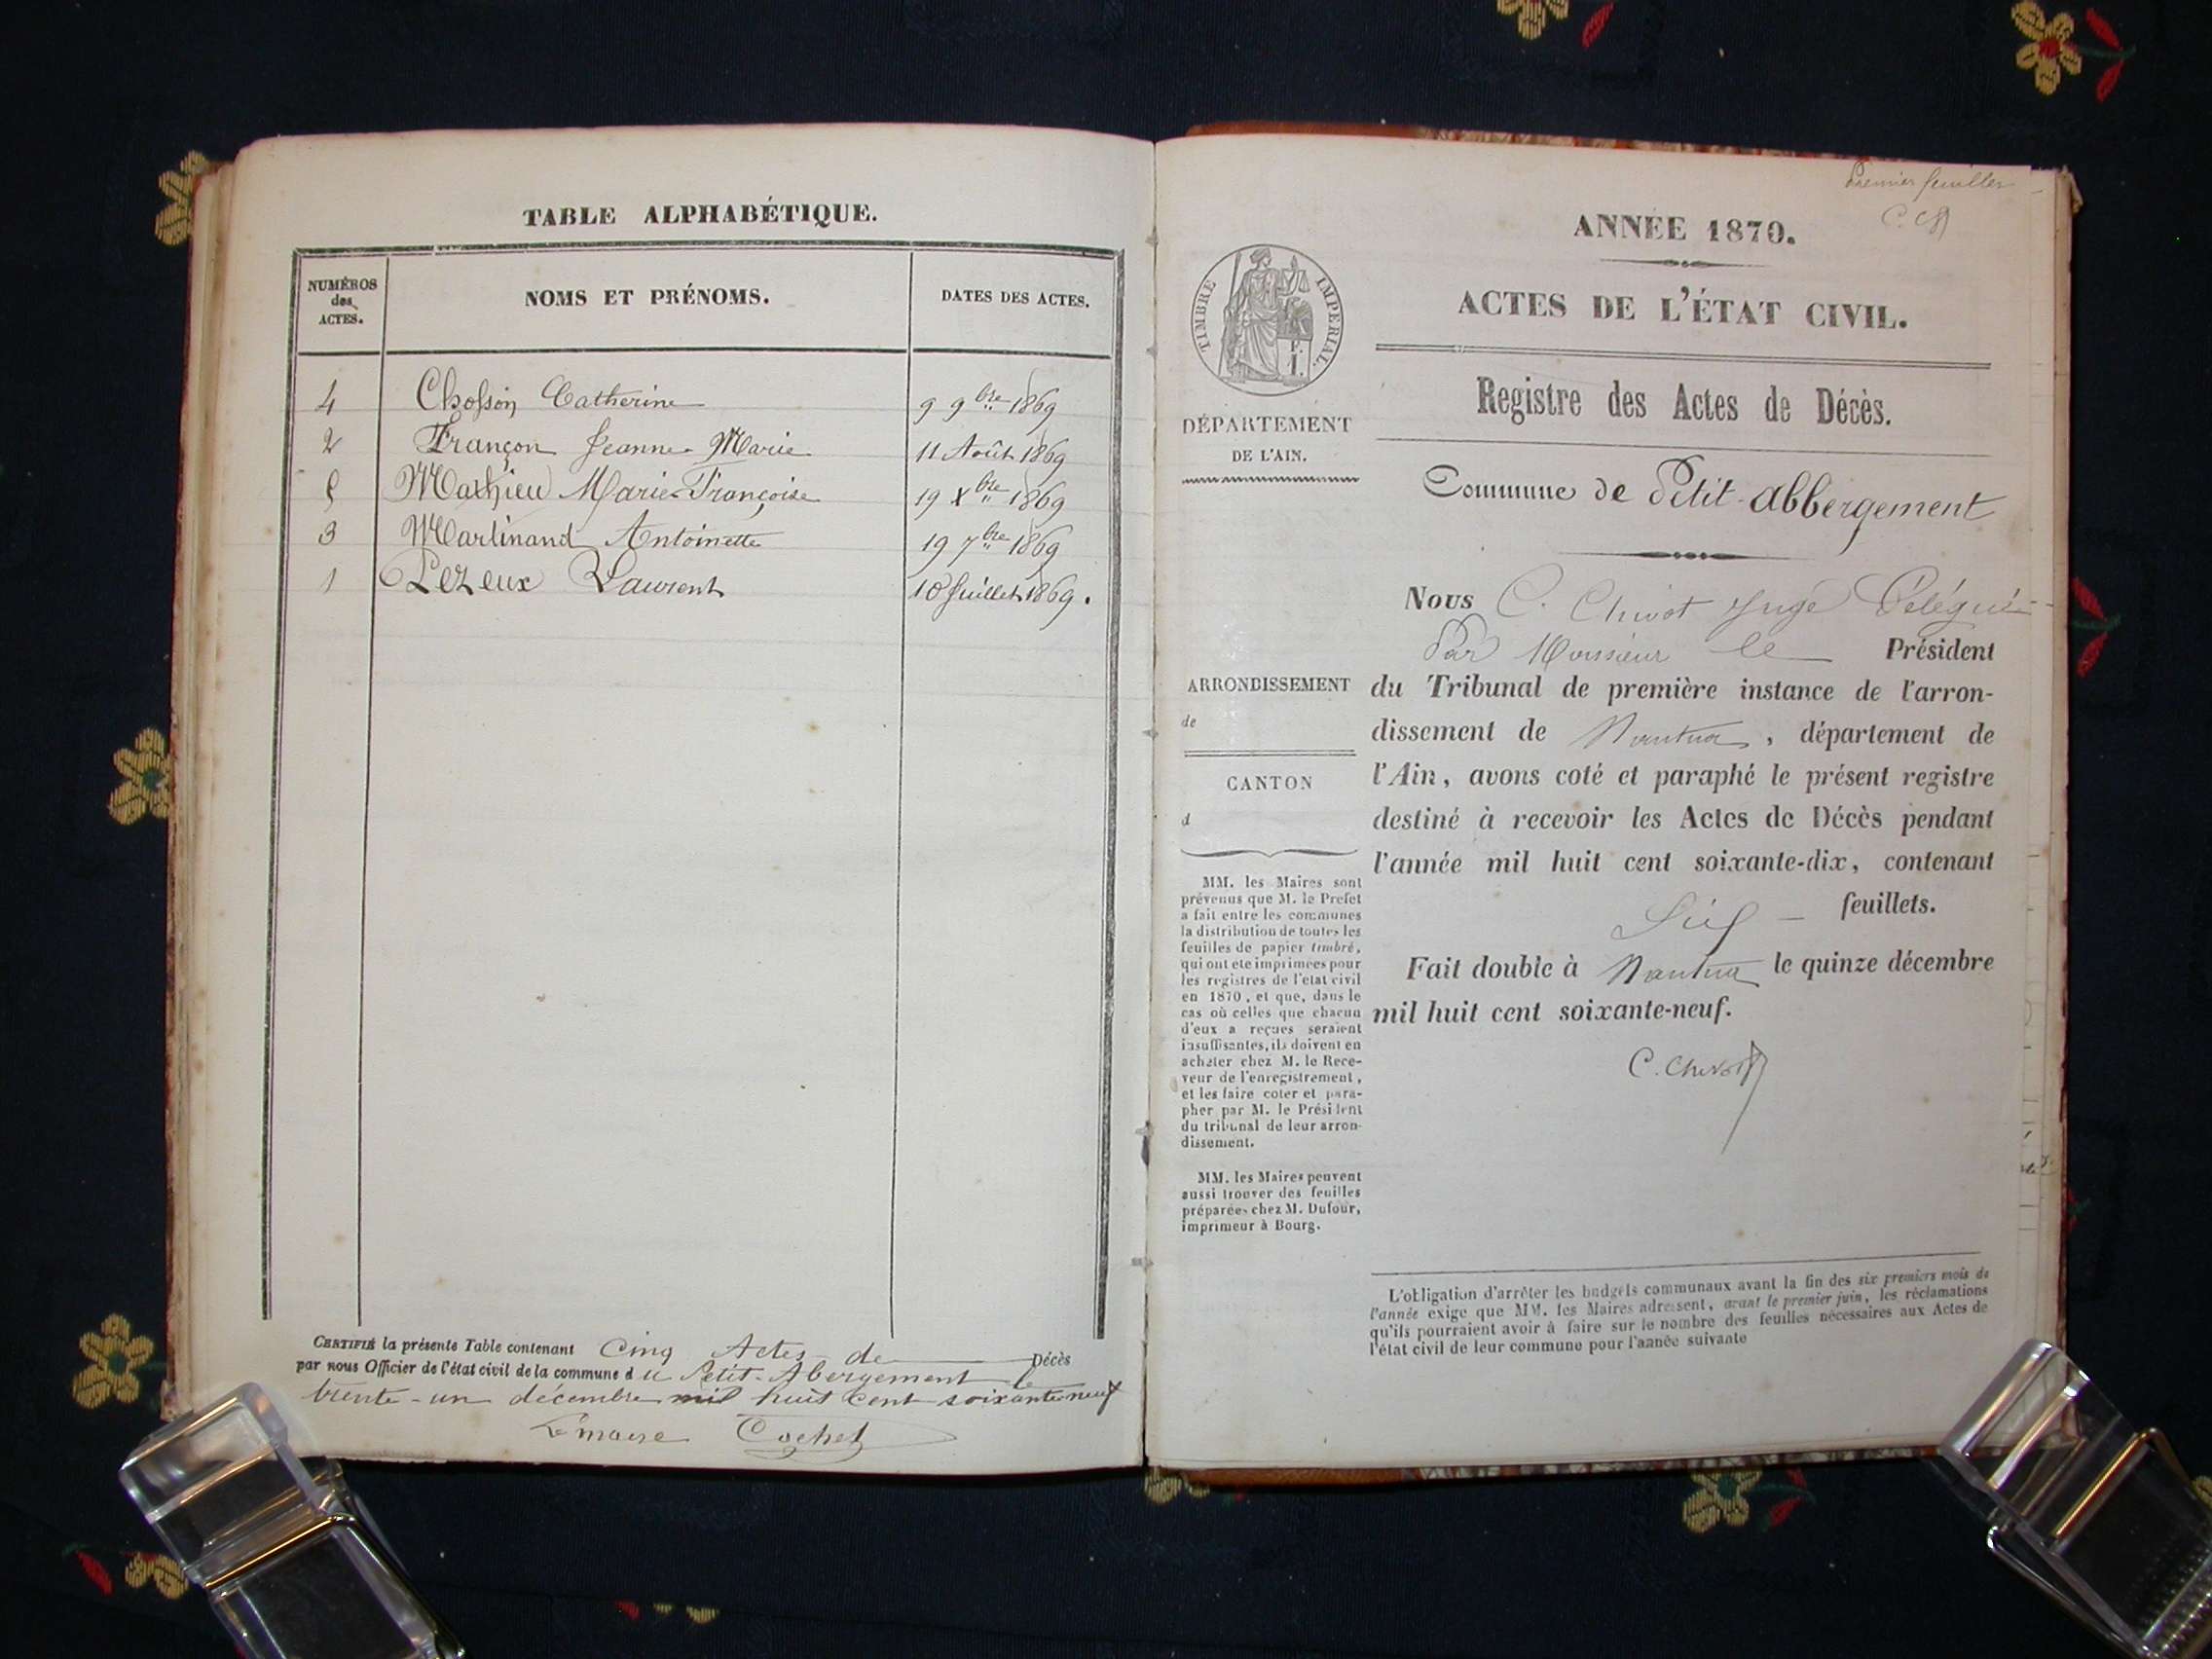 TABLE ALPHABÉTIQUE.
NUMÉROS des ACTES.
NOMS ET PRÉNOMS.
DATES DES ACTES.
4 Chosson Catherine 9 9bre 1869
2 Françon Jeanne-Marie 11 Août 1869
5 Mathieu Marie-Françoise 19 Xbre 1869
3 Martinand Antoinette 19 7bre 1869
1 Pezeux Laurent 10 Juillet 1869.
CERTIFIÉ la présente Table contenant Cinq Actes de Décès
par nous Officier de l'état civil de la commune du Petit-Abergement le
trente-un décembre mil huit cent soixante-neuf
Le maire Cochet
Premier feuillet
C. Ch
ANNÉE 1870.
ACTES DE L'ÉTAT CIVIL.
Registre des Actes de Décès.
TIMBRE IMPERIAL
1.
DÉPARTEMENT
DE L'AIN.
Commune de Petit-abbergement
Nous C. Chivot Juge Délégué
Par Monsieur le Président
du Tribunal de première instance de l'arron-
dissement de Nantua, département de
l'Ain, avons coté et paraphé le présent registre
destiné à recevoir les Actes de Décès pendant
l'année mil huit cent soixante-dix, contenant
Six feuillets.
Fait double à Nantua le quinze décembre
mil huit cent soixante-neuf.
C. Chivot
ARRONDISSEMENT
de
CANTON
d
MM. les Maires sont
prévenus que M. le Prefet
a fait entre les communes
la distribution de toutes les
feuilles de papier timbré,
qui ont été imprimées pour
les registres de l'etat civil
en 1870, et que, dans le
cas où celles que chacun
d'eux a reçues seraient
insuffisantes, ils doivent en
acheter chez M. le Rece-
veur de l'enregistrement,
et les faire coter et para-
pher par M. le Président
du tribunal de leur arron-
dissement.
MM. les Maires peuvent
aussi trouver des feuilles
préparées chez M. Dufour,
imprimeur à Bourg.
L'obligation d'arrêter les budgets communaux avant la fin des six premiers mois de
l'année exige que MM. les Maires adressent, avant le premier juin, les réclamations
qu'ils pourraient avoir à faire sur le nombre des feuilles nécessaires aux Actes de
l'état civil de leur commune pour l'année suivante